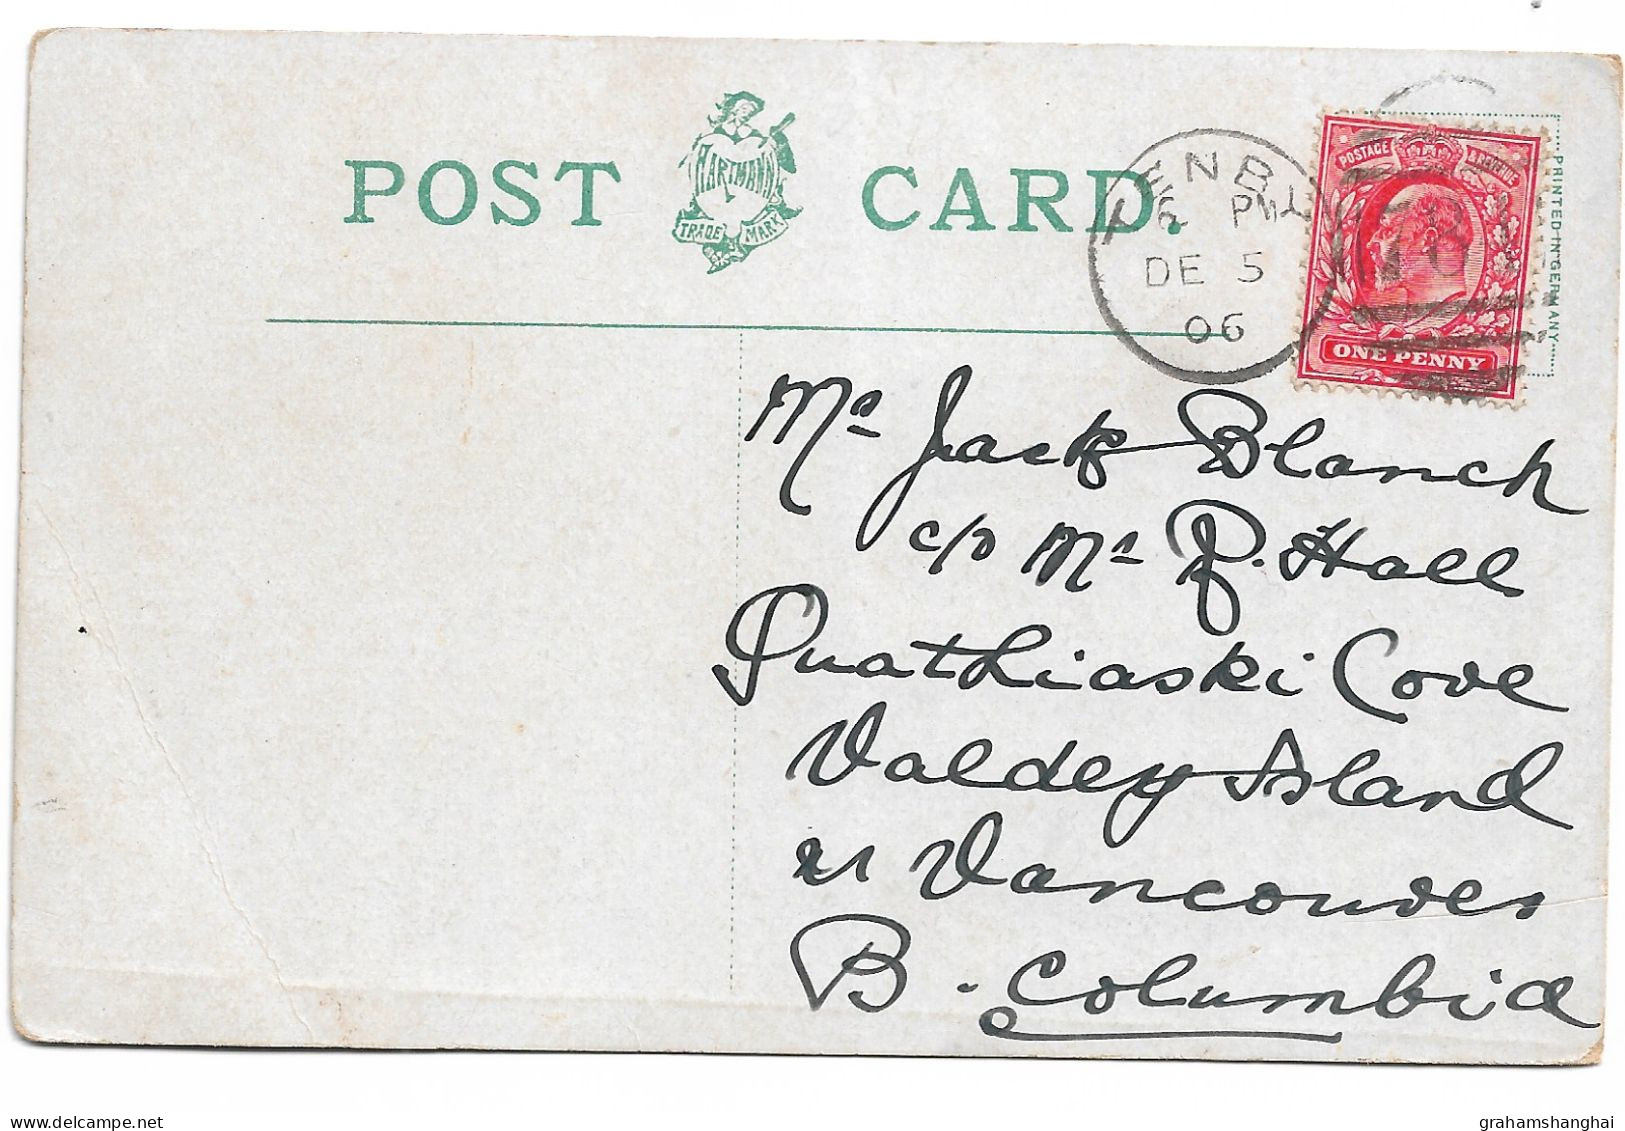 POST CARD.
HARTMANN
TRADE MARK
TENBY
PM
DE 5
06
POSTAGE & REVENUE
ONE PENNY
PRINTED IN GERMANY
Mr Jack Blanch
c/o Mr R. Hall
Quathiaski Cove
Valdey Island
nr Vancouver
B. Columbia
delcampe.net
grahamshanghai